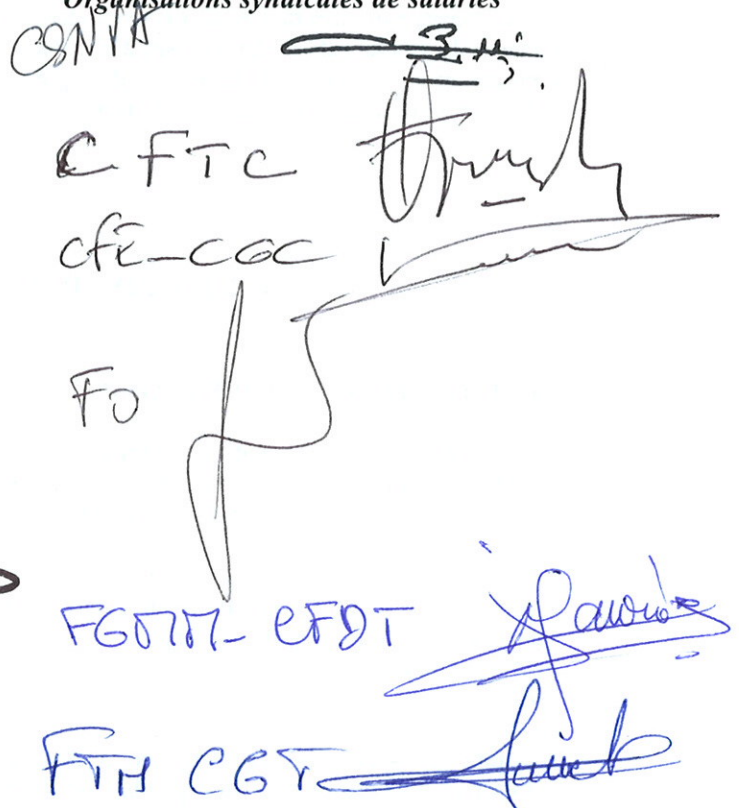 Organisations syndicales de salariés
CSNVA
CFTC
CFE-CGC
FO
FGMM-CFDT
FTM CGT